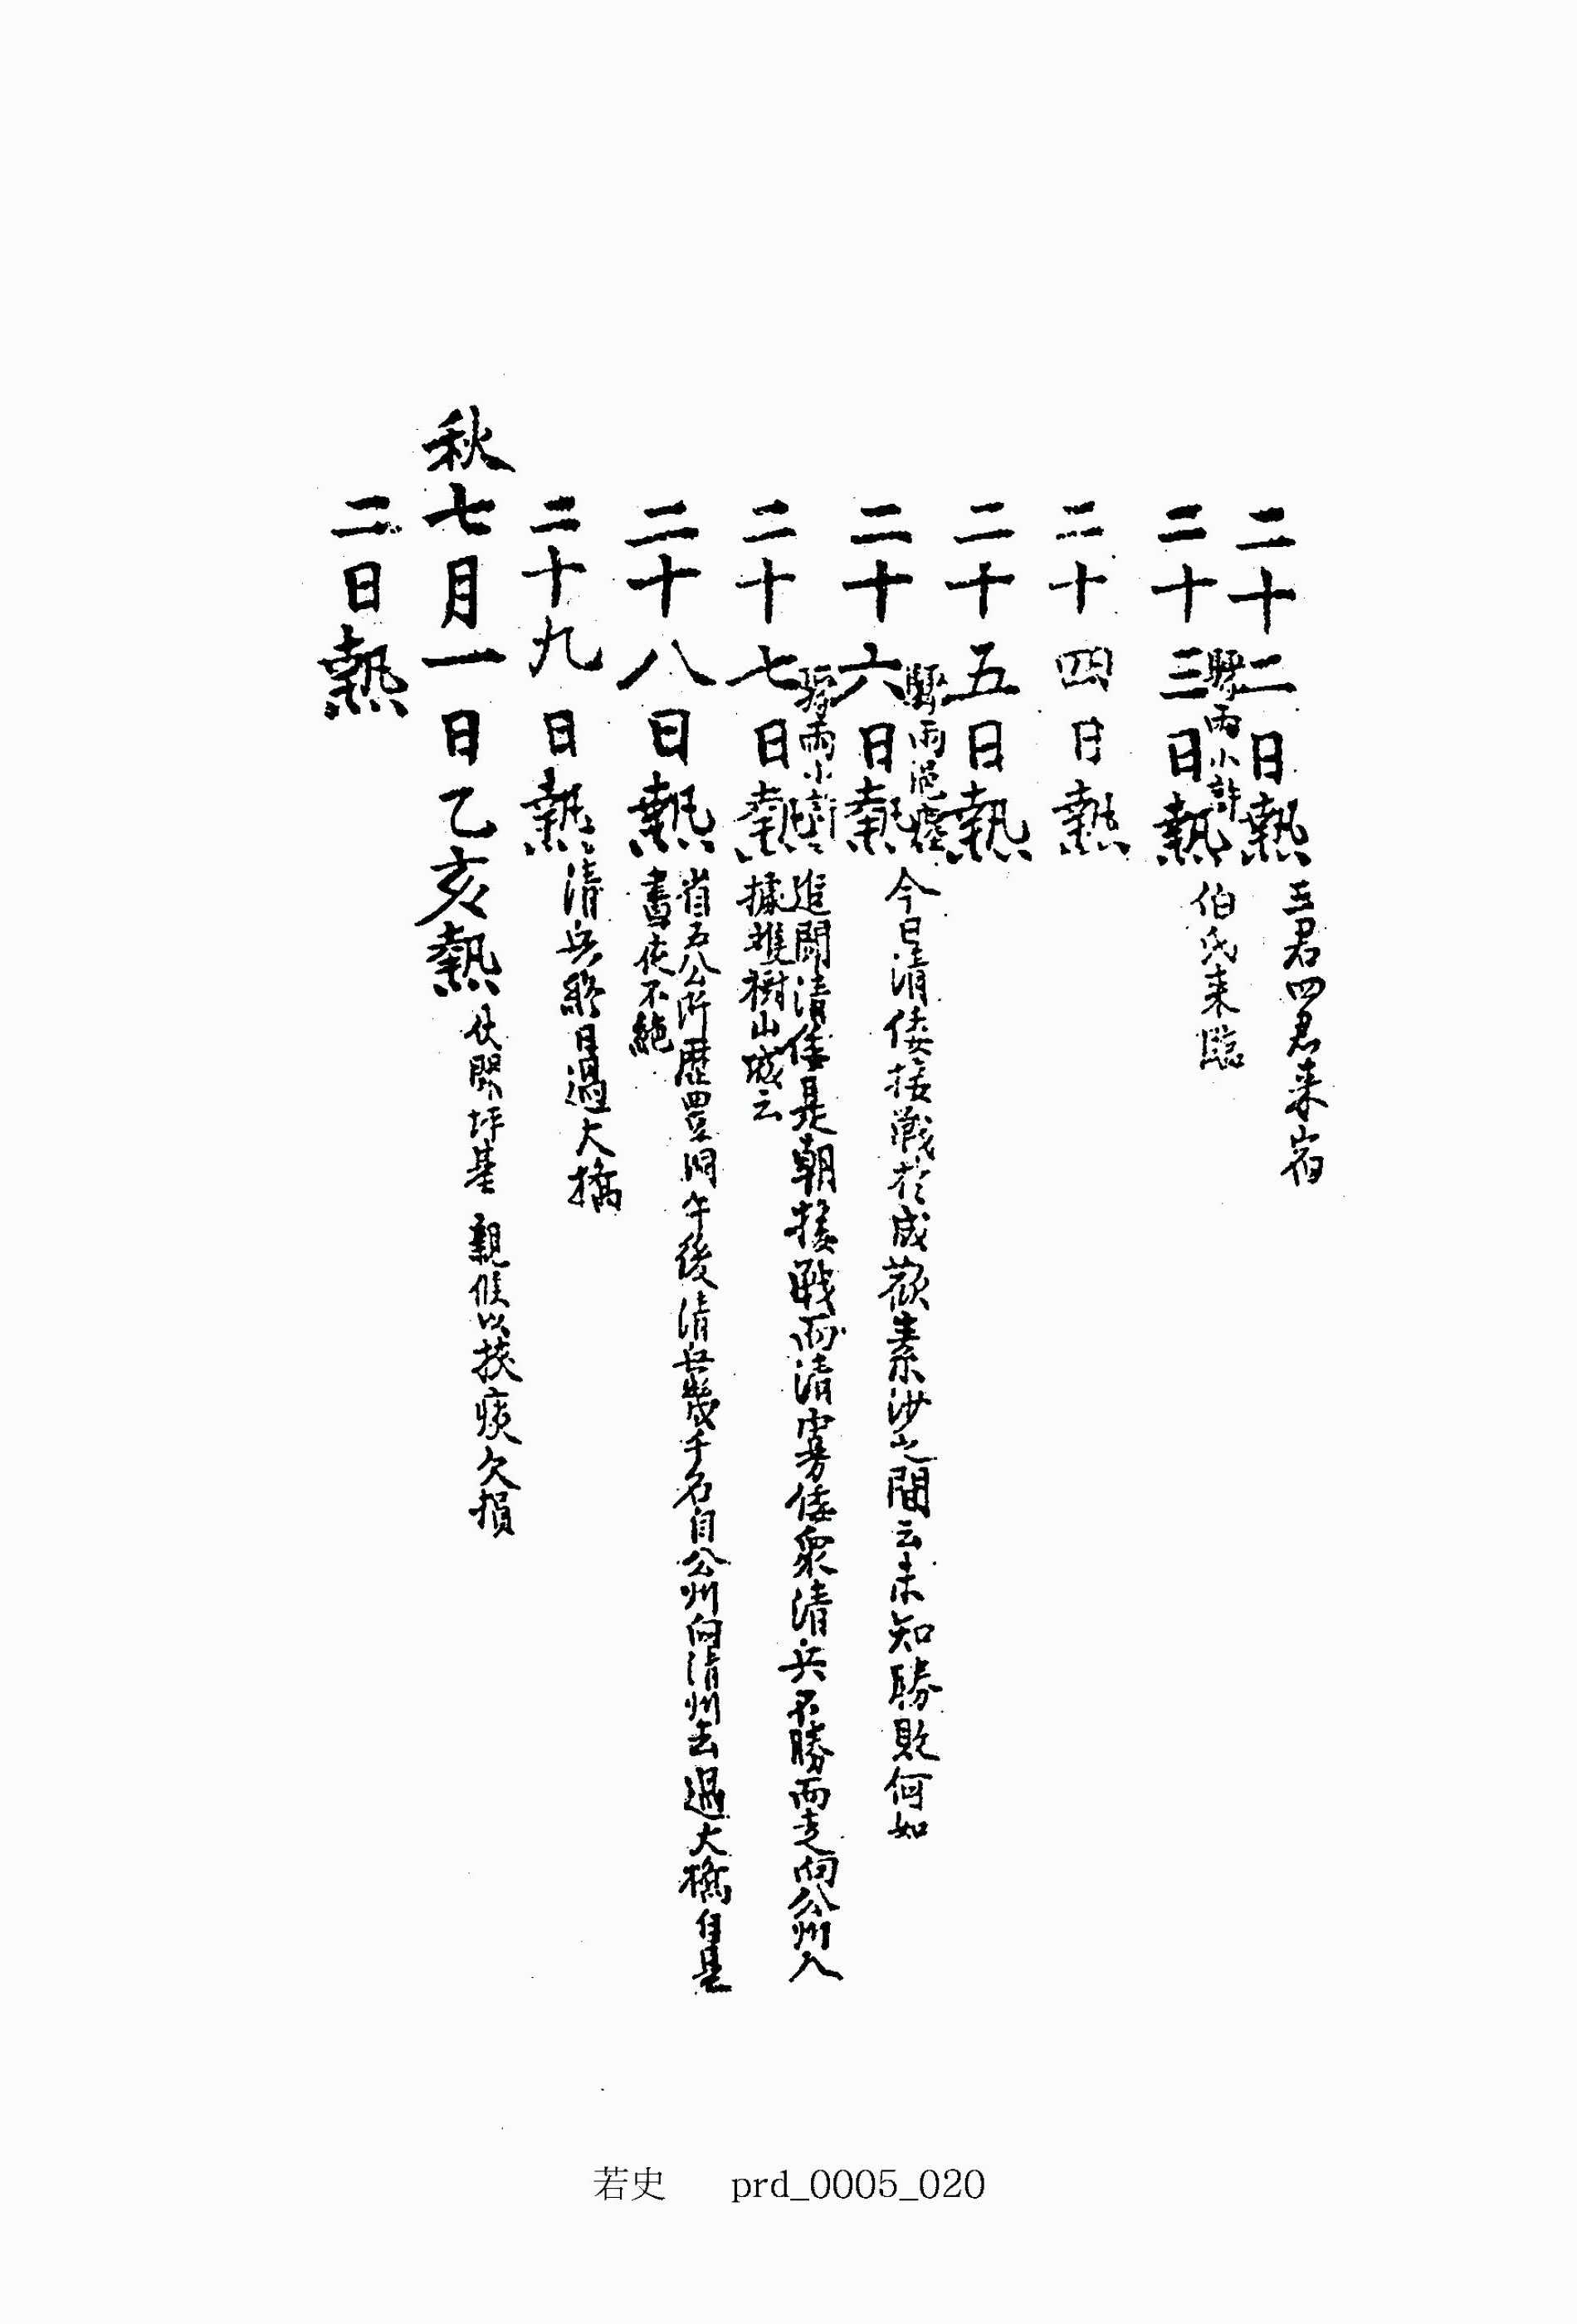 二十二日熱 三君四君來宿
二十三日熱 驟雨小許 伯氏來臨
二十四日熱
二十五日熱
二十六日熱 驟雨浥塵 今日淸倭接戰於成歡素沙之間云未知勝敗何如
二十七日熱 驟雨小許 追聞淸倭是朝接戰而淸寡倭衆淸兵不勝而走向公州入
據雙樹山城云
二十八日熱 省五公所歷豊洞午後淸兵幾千名自公州向淸州去過大橋自是
書夜不絶
二十九日熱 淸兵終日過大橋
秋七月一日乙亥熱 伏聞坪基 親候以挾痰欠損
二日熱
若史 prd_0005_020